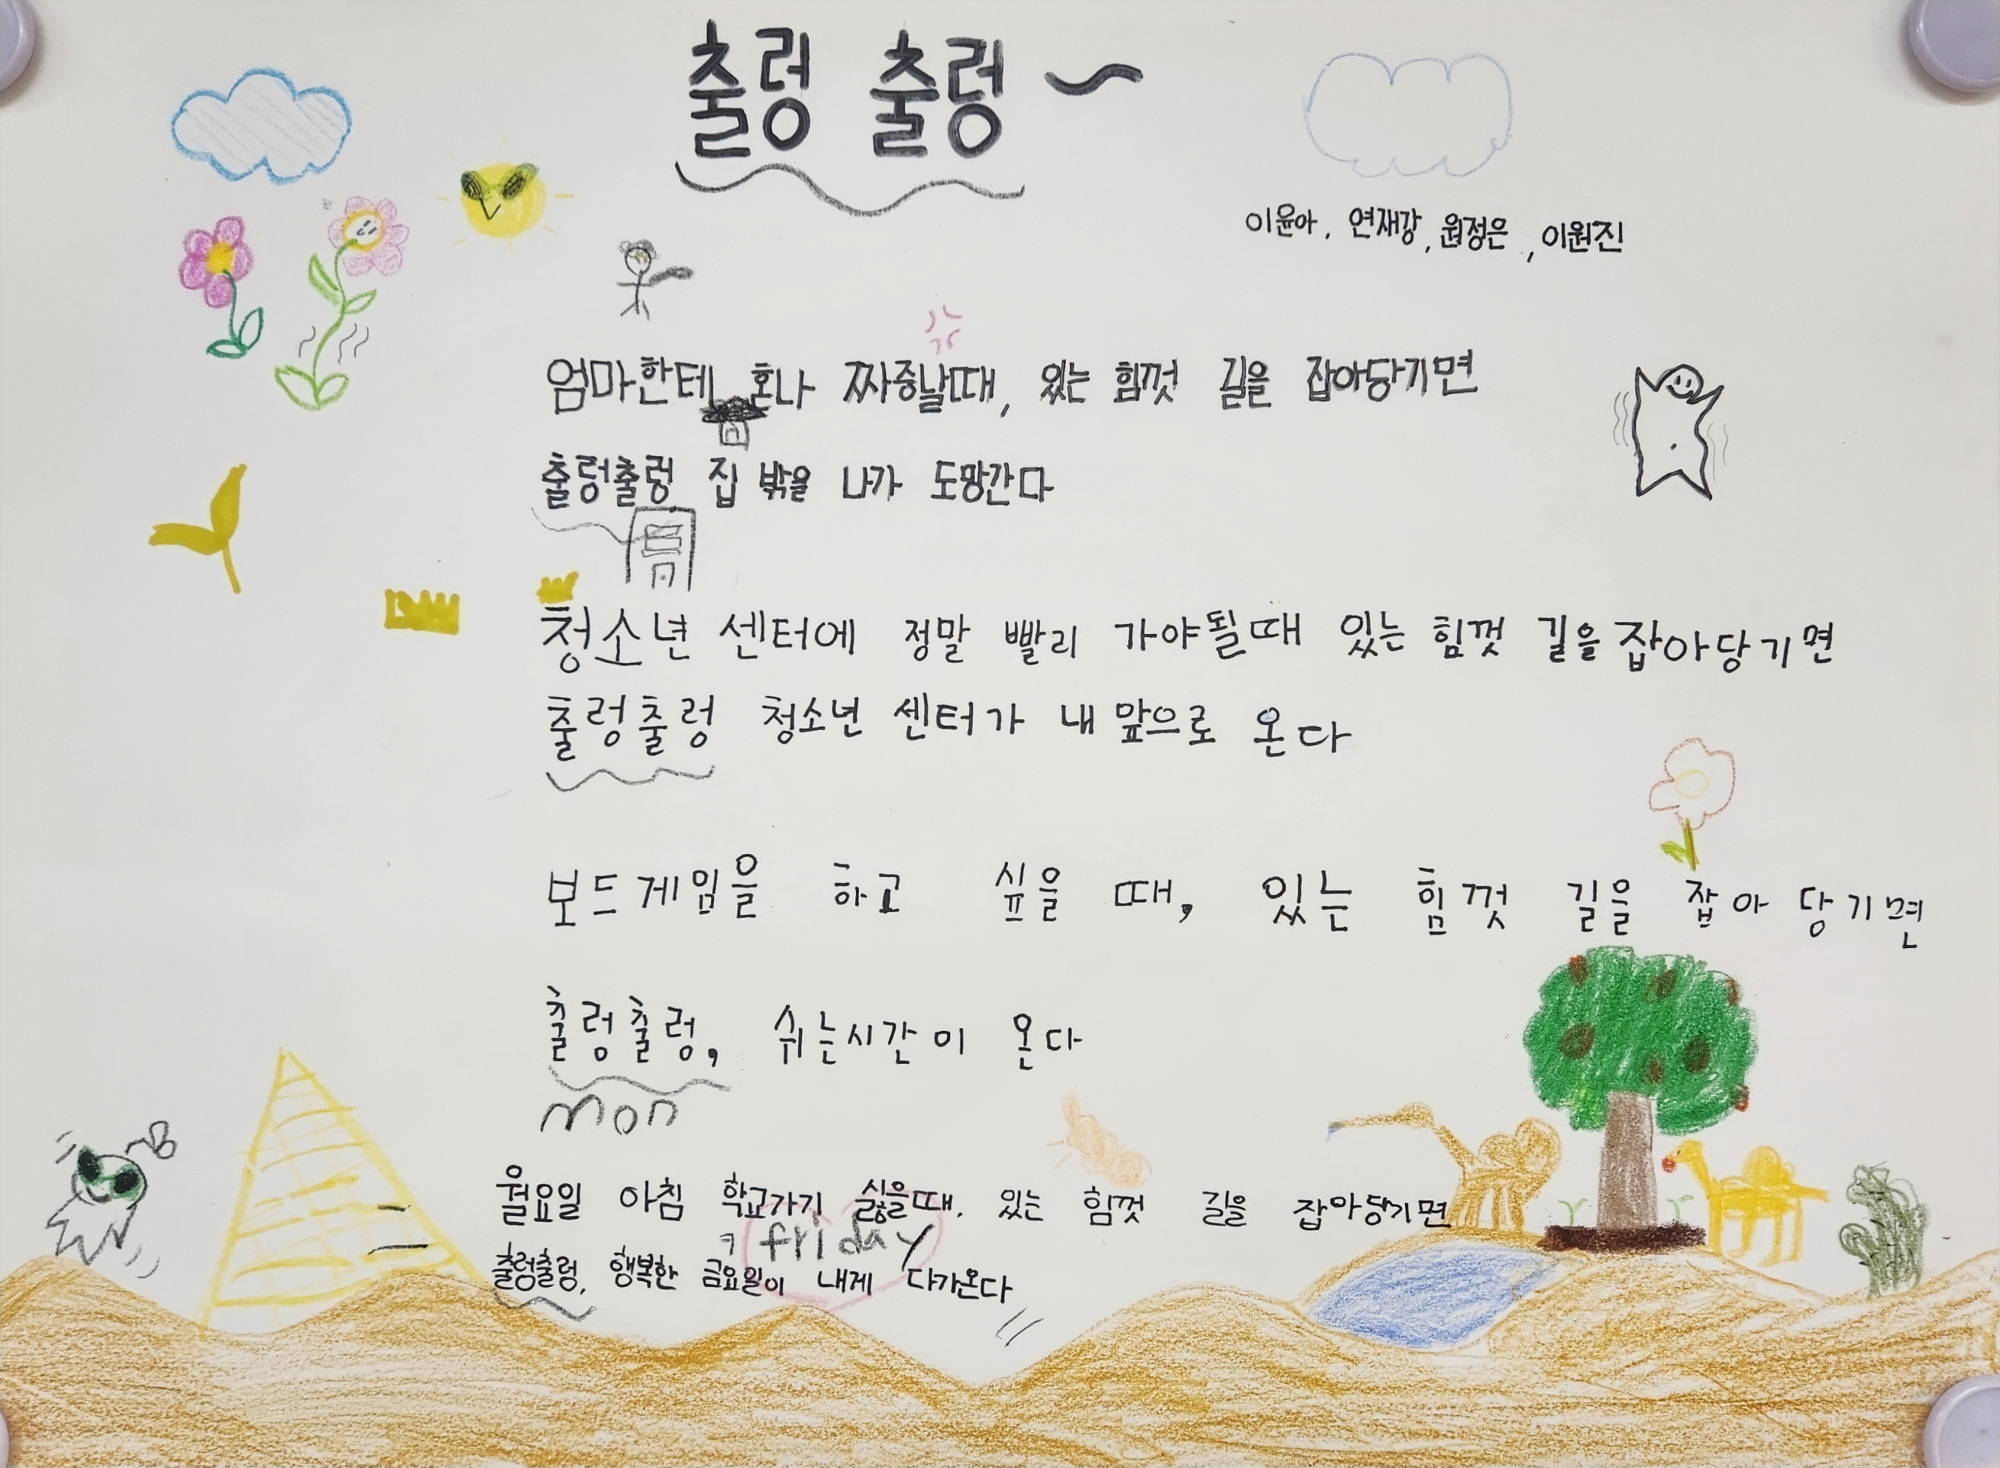 출렁 출렁~
이윤아, 연재강, 원정은, 이원진
엄마한테 혼나 짜증날때, 있는 힘껏 길을 잡아당기면
출렁출렁 집 밖을 나가 도망간다
청소년 센터에 정말 빨리 가야될때 있는 힘껏 길을 잡아당기면
출렁출렁 청소년 센터가 내 앞으로 온다
보드게임을 하고 싶을 때, 있는 힘껏 길을 잡아당기면
출렁출렁, 쉬는시간이 온다
mon
월요일 아침 학교가기 싫을때. 있는 힘껏 길을 잡아당기면
friday
출렁출렁, 행복한 금요일이 내게 다가온다